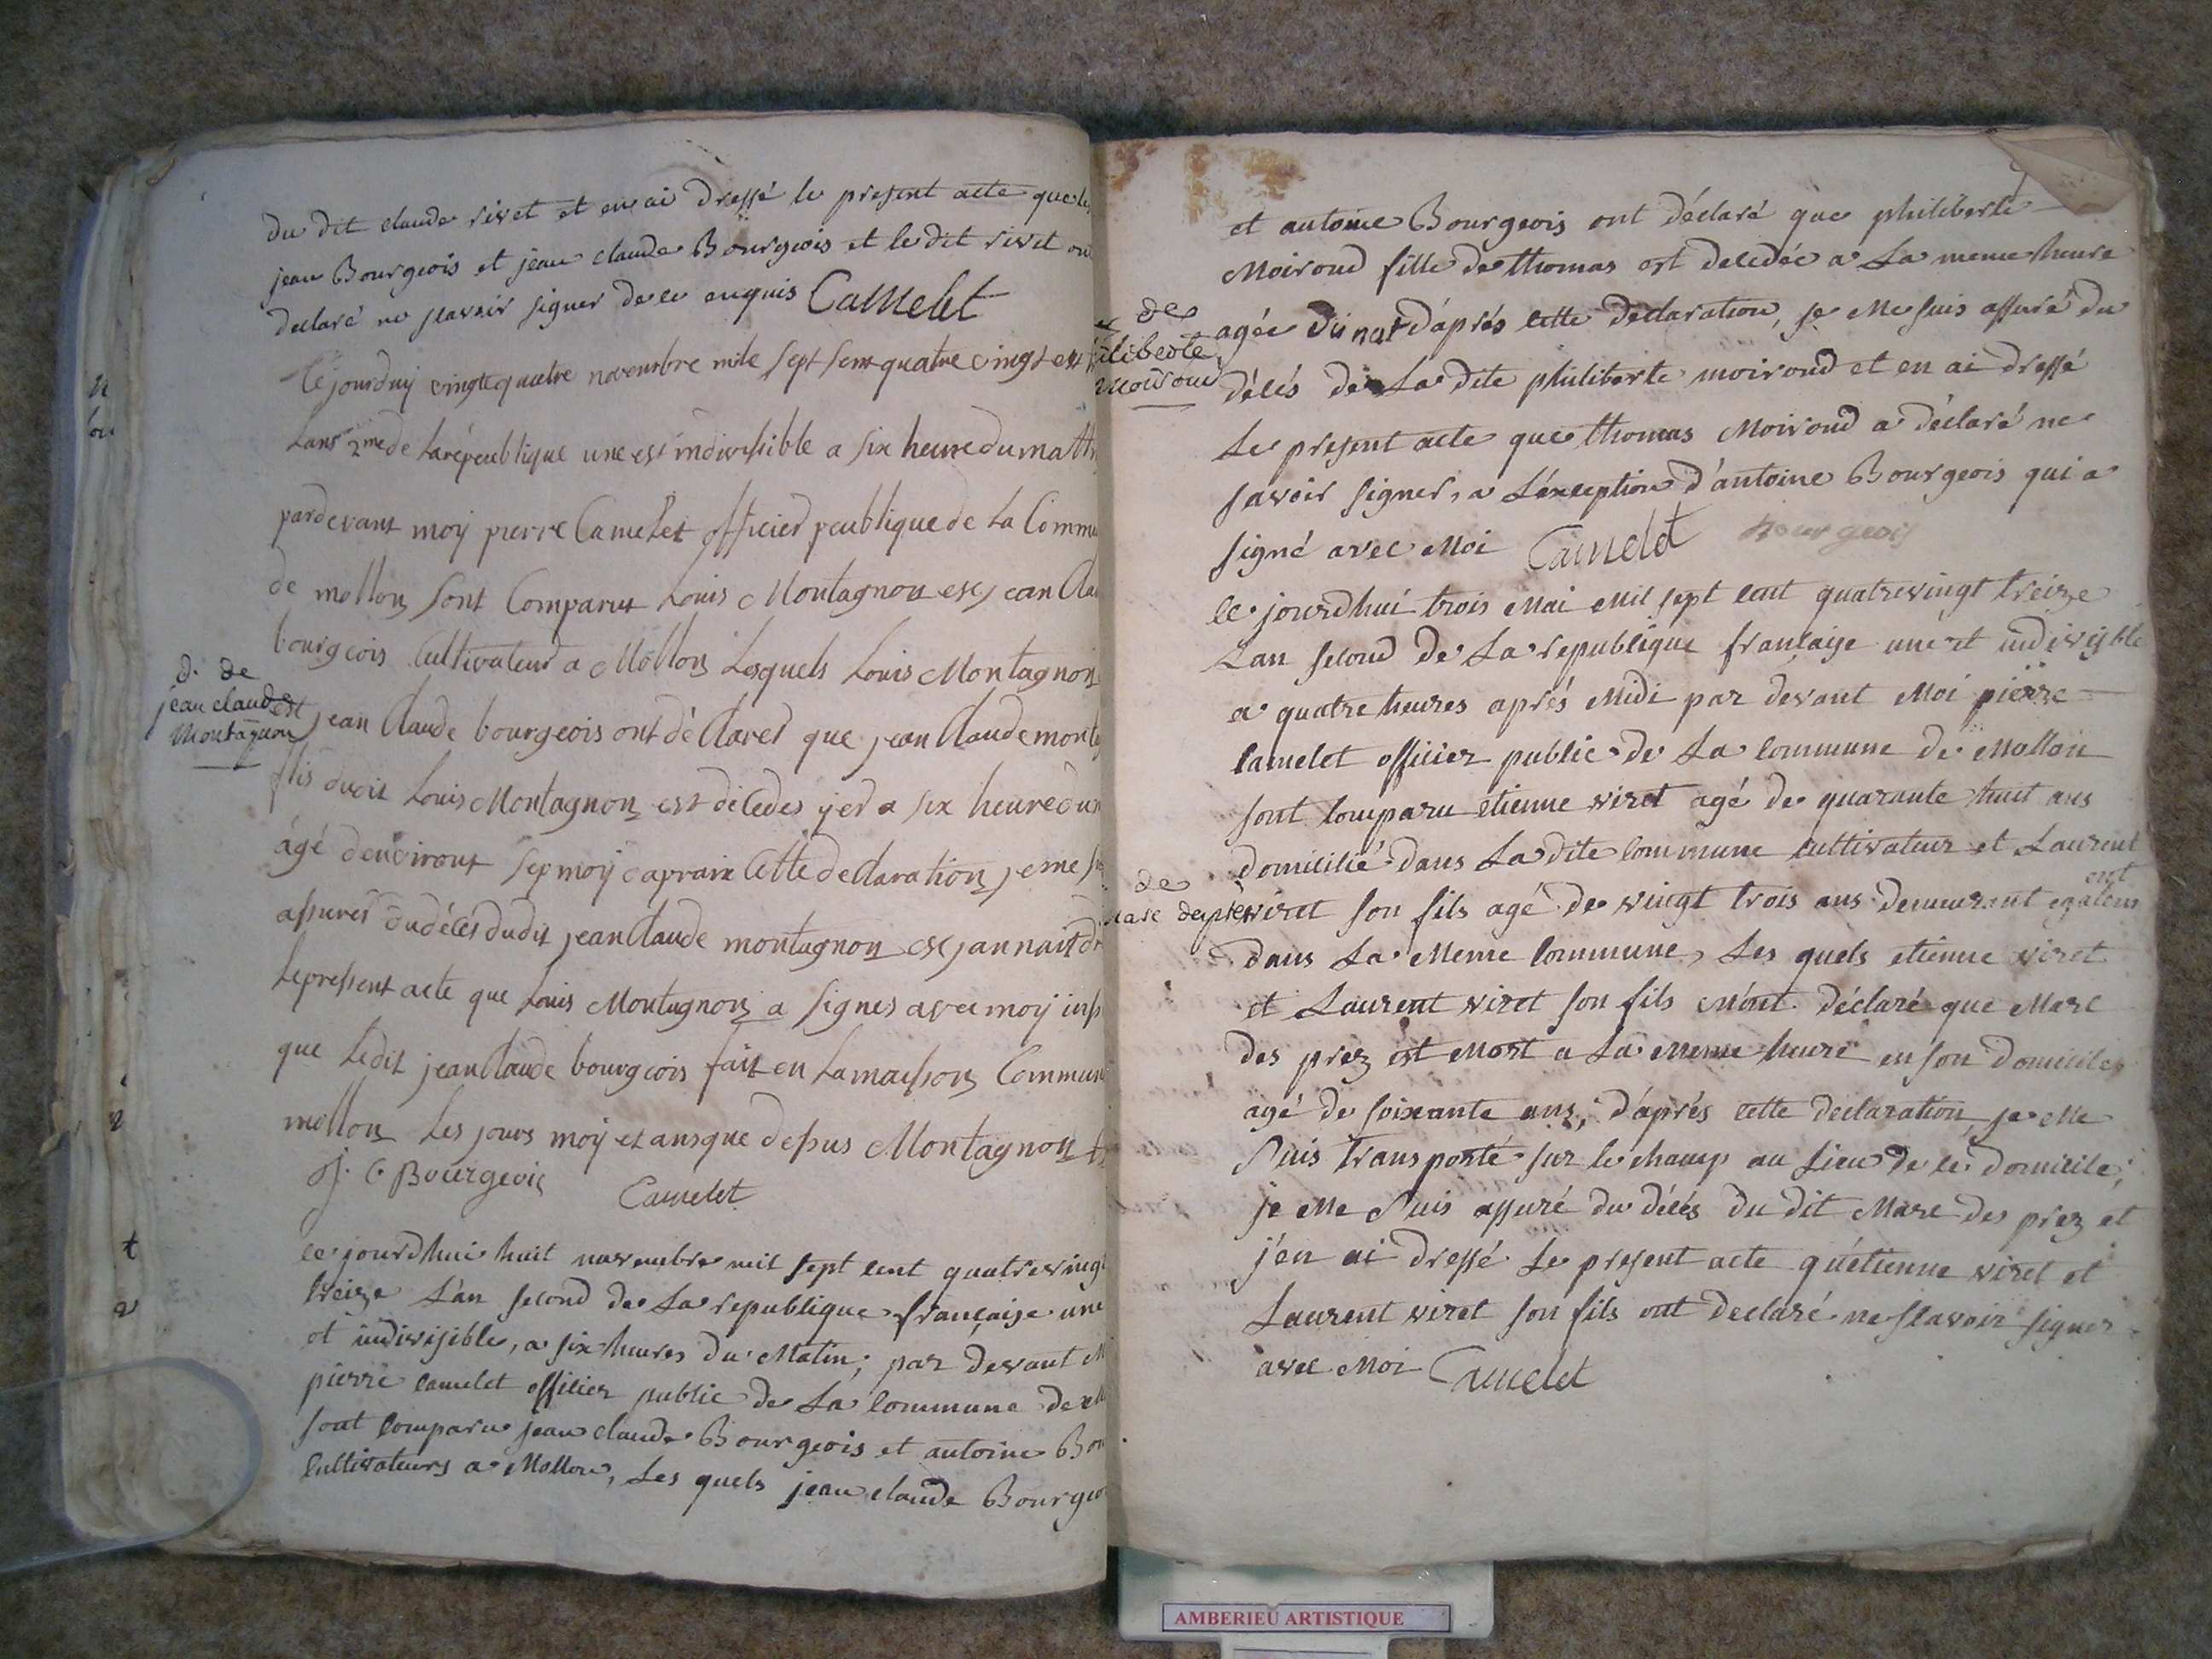 du dit claude rivet et en ai dressé le present acte que les
jean Bourgeois et jean claude Bourgeois et le dit rivet ont
declaré ne scavoir signer de ce enquis Camelet
Cejourduy vingtequatre novembre mile sept sent quatre vingt et
Lans 2me de Larépeublique une est indivissible a six heure du matt
pardevant moy pierre Camelet officier peublique de La Commu
de mollon sont Comparut Louis Montagnon es jean Clau
bourgeois Cultivateur a Mollon Lesquels Louis Montagnon
d. de
jean claude
Montagnon
est jean Claude bourgeois ont déClarer que jean Claude montag
fils dudit Louis Montagnon est déCedes yer a six heure du
âgé denviront sep moy e apraix Cette deClaration je me
assurer du décés dudit jean Claude montagnon es jannait
Lepressent acte que Louis Montagnon a signes avec moy
que Ledit jean Claude bourgeois fait en La maisson Commun
mollon Les jours moy et ans que dessus Montagnon
J. C. Bourgeois Camelet
ce jourdhui huit novembre mil sept cent quatrevingt
treize L'an second de La republique française une
et indivisible, a six heures du Matin; par devant M
pierre camelet officier public de La commune de M
sont comparu jean claude Bourgeois et antoine Bou
cultivateurs a Mollon, Les quels jean claude Bourgeoi
et antoine Bourgeois ont déclaré que philiberte
Moiroud fille de thomas est decedée a La meme heure
de
iliberte
Moiroud
agée d'un d'aprés cette declaration, je Me suis assuré du
décés de La dite philiberte moiroud et en ai dressé
Le present acte que thomas Moiroud a déclaré ne
savoir signer, a L'exception d'antoine Bourgeois qui a
signé avec Moi Camelet bourgeois
ce jourdhui trois Mai Mil sept cent quatrevingt treize
L'an second de La republique française une et indivisible
a quatre heures aprés Midi par devant Moi pierre
camelet officier public de La commune de Mollon
sont comparu etienne viret agé de quarante huit ans
domicilié dans La dite commune cultivateur et Laurent
de
marc deprè
viret son fils agé de vingt trois ans demeurant egalem
ent
dans La Meme commune, Les quels etienne viret
et Laurent viret son fils M'ont déclaré que Marc
des prez est Mort a La Meme heure en son domicile
agé de soixante ans; d'aprés cette declaration, je Me
Suis transporté sur le champ au Lieu de ce domicile;
je Me Suis assuré du décés du dit Marc des prez et
j'en ai dressé Le present acte qu'etienne viret et
Laurent viret son fils ont declaré ne scavoir signer
avec Moi Camelet
AMBERIEU ARTISTIQUE